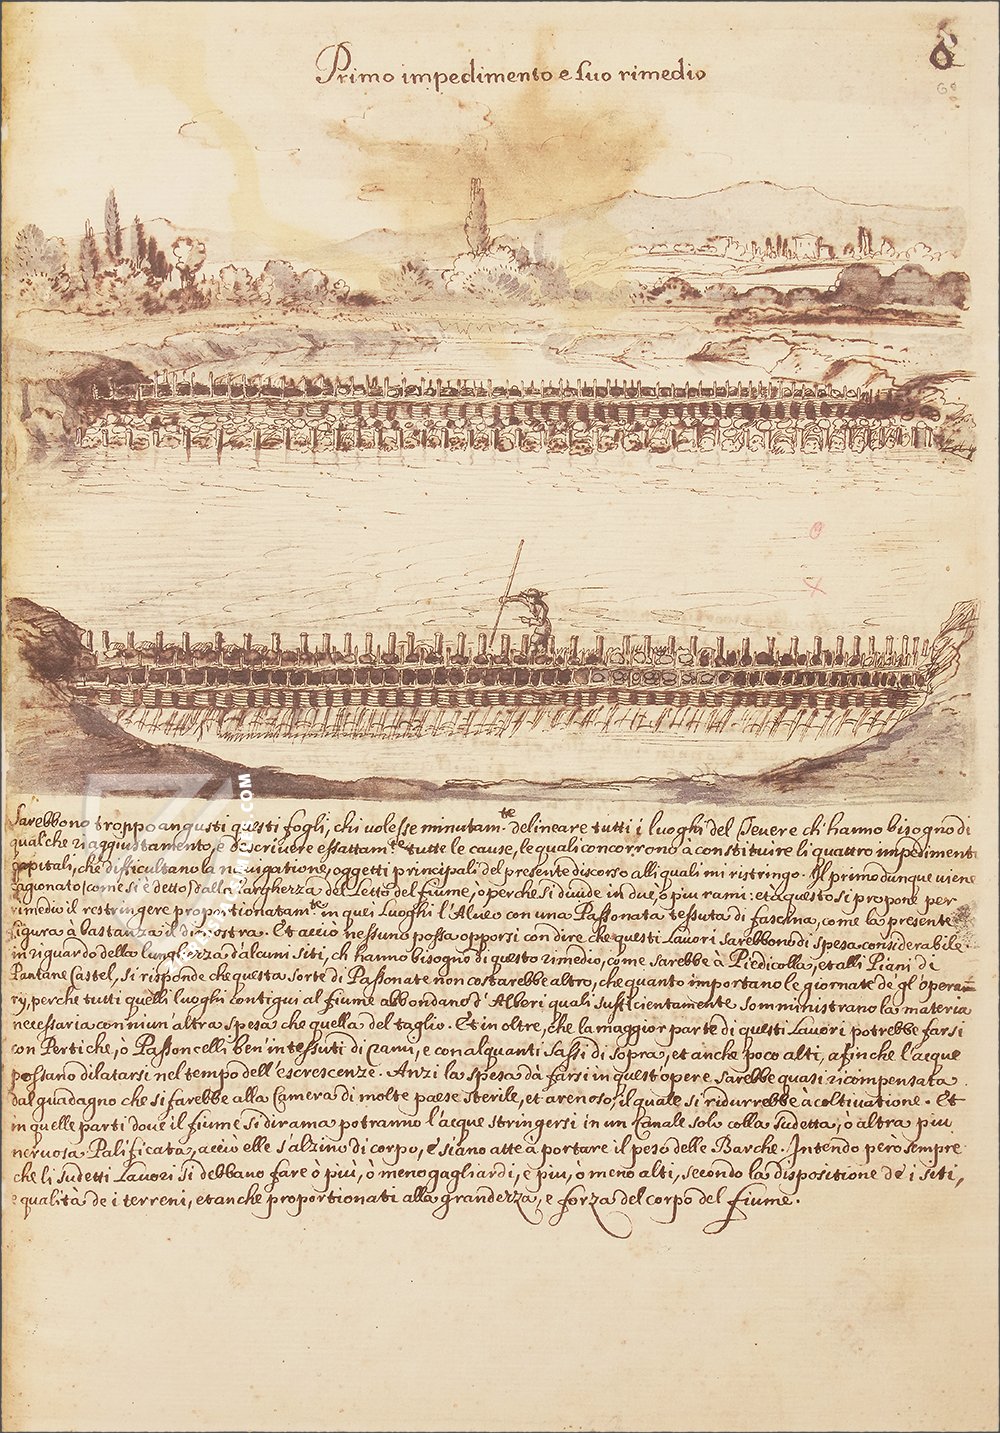 8
60
Primo impedimento e suo rimedio
Sarebbono troppo angusti questi fogli, chi volesse minutam.te delineare tutti i luoghi del Tevere ch'hanno bisogno di
qualche riaggiustamento, e descrivere essattam.te tutte le cause, le quali concorrono à constituire li quattro impedimenti
capitali, che difficultano la navigatione, oggetti principali del presente discorso alli quali mi ristringo. Il primo dunque viene
cagionato (come si è detto) dalla larghezza del Letto del fiume, o perche si divide in due, ò piu rami: et a questo si propone per
rimedio il restringere proportionatam.te in quei Luoghi l'Alveo con una Passonata tessuta di fascina, come la presente
figura à bastanza il dimostra. Et acciò nessuno possa opporsi con dire che questi Lavori sarebbono di spesa considerabile
in riguardo della lungherza d'alcuni siti, ch hanno bisogno di questo rimedio, come sarebbe à Piedicolla, et alli Piani di
Pantane Castel, si risponde che questa sorte di Passonate non costarebbe altro, che quanto importano le giornate de gl'opera=
rÿ, perche tutti quelli luoghi contigui al fiume abbondano d'Alberi quali sufficientamente somministrano la materia
necessaria con niun'altra spesa che quella del taglio. Et in oltre, che la maggior parte di questi Lavori potrebbe farsi
con Pertiche, ò Passoncelli ben intessuti di rami, e con alquanti sassi di sopra, et anche poco alti, afinche l'acque
possano dilatarsi nel tempo dell'escrescenze. Anzi la spesa dà farsi in quest'opere sarebbe quasi ricompensata
dal guadagno che si farebbe alla Camera di molte paese sterile, et arenoso, il quale si ridurrebbe à coltivatione. Et
in quelle parti dove il fiume si dirama potranno l'acque stringersi in un Canale solo colla sudetta, ò altra piu
nervosa Palificata, acciò elle s'alzino di corpo, e siano atte à portare il peso delle Barche. Intendo però sempre
che li sudetti Lavori si debbano fare ò più, ò meno gagliardi, e piu, ò meno alti, secondo la dispositione de i siti,
e qualità de i terreni, et anche proportionati alla granderza, e forza del corpo del fiume.